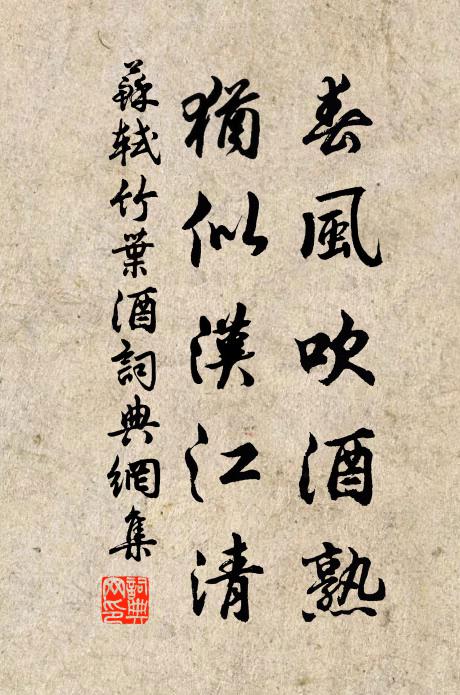 春風吹酒熟
猶似漢江清
蘇軾竹葉酒詞典網集
詞典网印